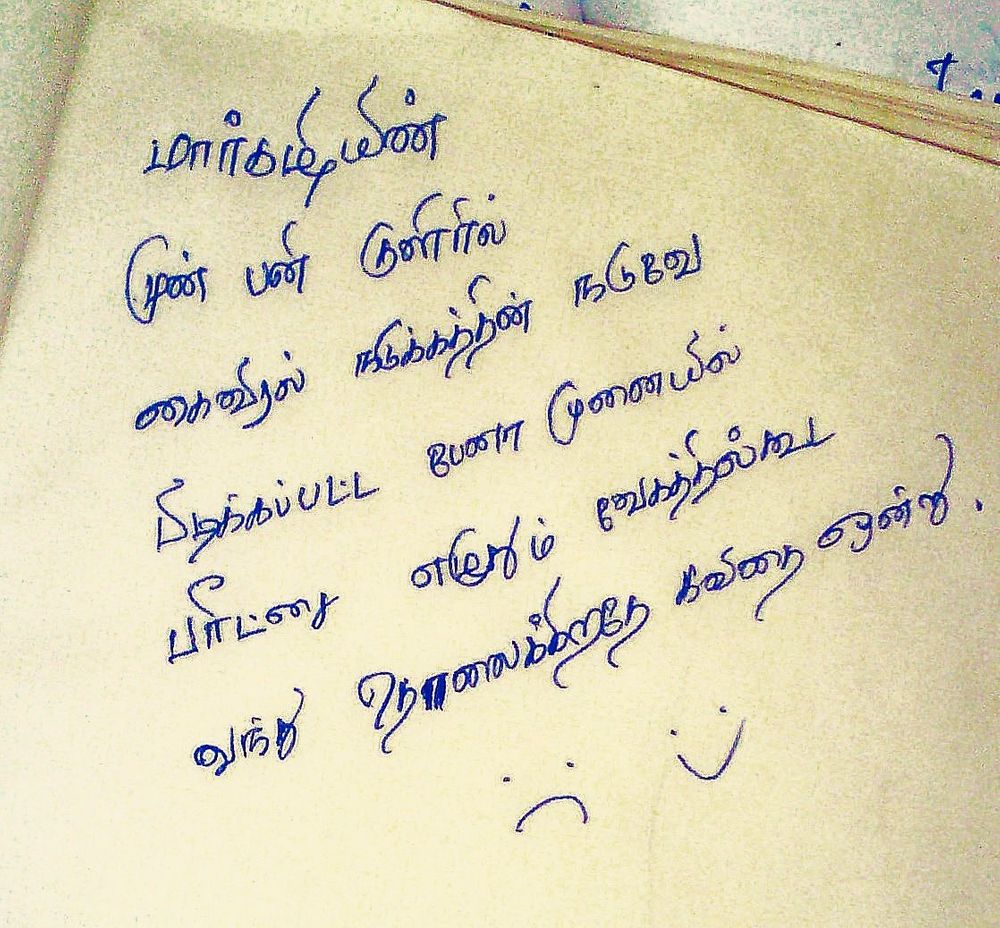 மார்கழியின்
முன் பனி குளிரில்
கைவிரல் நடுக்கத்தின் நடுவே
பிடிக்கப்பட்ட பேனா முனையில்
பரீட்சை எழுதும் வேகத்தில்கூட
வந்து தொலைக்கிறதே கவிதை ஒன்று.